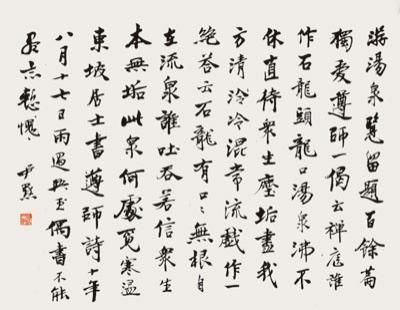 游湯泉覽留題百餘篇
獨愛遵師一偈云禪庭誰
作石龍頭龍口湯泉沸不
休直待衆生塵垢盡我
方清冷冷混常流戲作一
絕答云石龍有口〻無根自
在流泉誰吐吞若信衆生
本無垢此泉何處覓寒温
東坡居士書遵師詩十年
八月十七日雨過興至偶書不能
慙愧 尹默